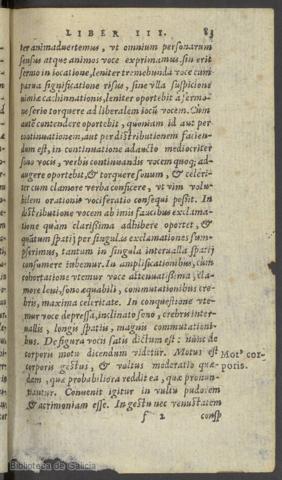 LIBER III. 83
ter animaduertemus, vt omnium personarum
sensus atque animos voce exprimamus. sin erit
sermo in iocatione, leniter tremebunda voce cum
parua significatione risus, sine vlla suspicione
nimiæ cachinnationis, leniter oportebit à sermo-
ne serio torquere ad liberalem iocũ vocem. Cùm
autẽ contendere oportebit, quoniam id aut per
continuationem, aut per distributionem facien-
dum est, in continuatione adaucto mediocriter
sono vocis, verbis continuandis vocem quoq; ad-
augere oportebit, & torquere sonum, & celeri-
ter cum clamore verba conficere, vt vim volu-
bilem orationis vociferatio consequi possit. In
distributione vocem ab imis faucibus exclama-
tione quàm clarissima adhibere oportet, &
quãtum spatij per singulas exclamationes sum-
pserimus, tantum in singula interualla spatij
consumere iubemur. In amplificationibus, cùm
cohortatione vtemur voce attenuatissima, cla-
more leni, sono æquabili, commutationibus cre-
bris, maxima celeritate. In conquestione vte-
mur voce depressa, inclinato sono, crebris inter-
uallis, longis spatijs, magnis commutationi-
bus. De figura vocis satis dictum est: nunc de
corporis motu dicendum videtur. Motus est
corporis gestus, & vultus moderatio quæ-
dam, quæ probabiliora reddit ea, quæ pronun-
tiantur. Conuenit igitur in vultu pudorem
& acrimoniam esse. In gestu nec venustatem
f 2 consp
Mot⁹ cor-
poris.
Biblioteca de Galicia